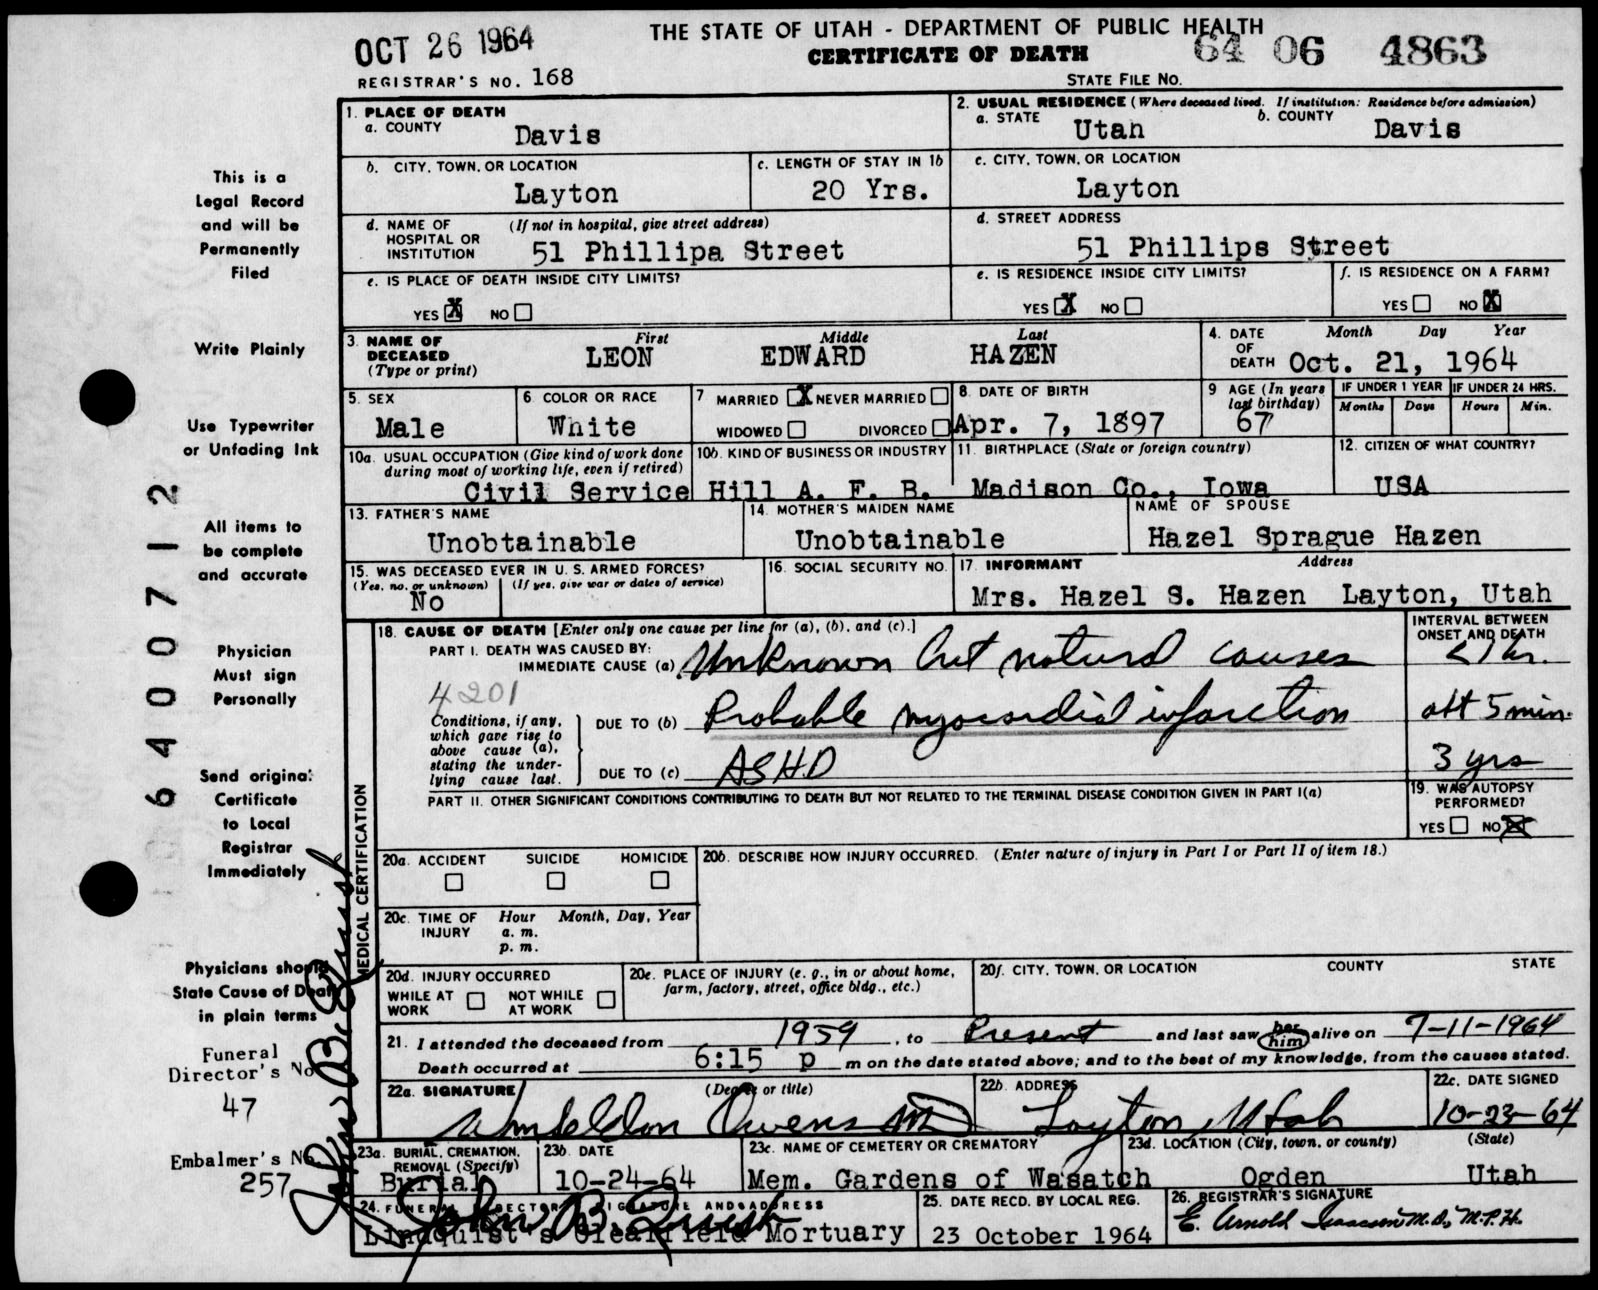 THE STATE OF UTAH - DEPARTMENT OF PUBLIC HEALTH
OCT 26 1964 CERTIFICATE OF DEATH 64 06 4863
REGISTRAR'S NO. 168 STATE FILE NO.
1. PLACE OF DEATH
a. COUNTY Davis
2. USUAL RESIDENCE (Where deceased lived. If institution: Residence before admission)
a. STATE Utah b. COUNTY Davis
b. CITY, TOWN, OR LOCATION Layton
c. LENGTH OF STAY IN 1b 20 Yrs.
c. CITY, TOWN, OR LOCATION Layton
d. NAME OF HOSPITAL OR INSTITUTION (If not in hospital, give street address) 51 Phillipa Street
d. STREET ADDRESS 51 Phillips Street
e. IS PLACE OF DEATH INSIDE CITY LIMITS?
YES X NO
e. IS RESIDENCE INSIDE CITY LIMITS?
YES X NO
f. IS RESIDENCE ON A FARM?
YES NO X
3. NAME OF DECEASED (Type or print) First Middle Last
LEON EDWARD HAZEN
4. DATE OF DEATH Month Day Year
Oct. 21, 1964
5. SEX Male
6. COLOR OR RACE White
7 MARRIED X NEVER MARRIED
WIDOWED DIVORCED
8. DATE OF BIRTH Apr. 7, 1897
9 AGE (In years last birthday) 67
IF UNDER 1 YEAR Months Days
IF UNDER 24 HRS. Hours Min.
10a. USUAL OCCUPATION (Give kind of work done during most of working life, even if retired)
Civil Service
10b. KIND OF BUSINESS OR INDUSTRY Hill A. F. B.
11. BIRTHPLACE (State or foreign country) Madison Co., Iowa
12. CITIZEN OF WHAT COUNTRY? USA
13. FATHER'S NAME Unobtainable
14. MOTHER'S MAIDEN NAME Unobtainable
NAME OF SPOUSE Hazel Sprague Hazen
15. WAS DECEASED EVER IN U. S. ARMED FORCES?
(Yes, no, or unknown) (If yes, give war or dates of service)
No
16. SOCIAL SECURITY NO.
17. INFORMANT Address
Mrs. Hazel S. Hazen Layton, Utah
18. CAUSE OF DEATH [Enter only one cause per line for (a), (b), and (c).]
INTERVAL BETWEEN ONSET AND DEATH
PART I. DEATH WAS CAUSED BY:
IMMEDIATE CAUSE (a) Unknown but natural causes <1 hr.
4201
Conditions, if any, which gave rise to above cause (a), stating the underlying cause last.
DUE TO (b) Probable myocardial infarction 5 min.
DUE TO (c) ASHD 3 yrs
PART II. OTHER SIGNIFICANT CONDITIONS CONTRIBUTING TO DEATH BUT NOT RELATED TO THE TERMINAL DISEASE CONDITION GIVEN IN PART I(a)
19. WAS AUTOPSY PERFORMED?
YES NO X
20a. ACCIDENT SUICIDE HOMICIDE
20b. DESCRIBE HOW INJURY OCCURRED. (Enter nature of injury in Part I or Part II of item 18.)
20c. TIME OF INJURY Hour Month, Day, Year
a. m.
p. m.
20d. INJURY OCCURRED
WHILE AT WORK NOT WHILE AT WORK
20e. PLACE OF INJURY (e. g., in or about home, farm, factory, street, office bldg., etc.)
20f. CITY, TOWN, OR LOCATION COUNTY STATE
21. I attended the deceased from 1959, to Present and last saw her him alive on 7-11-1964
Death occurred at 6:15 p m on the date stated above; and to the best of my knowledge, from the causes stated.
22a. SIGNATURE (Degree or title)
Owens MD
22b. ADDRESS Layton, Utah
22c. DATE SIGNED 10-23-64
23a. BURIAL, CREMATION, REMOVAL (Specify) Burial
23b. DATE 10-24-64
23c. NAME OF CEMETERY OR CREMATORY Mem. Gardens of Wasatch
23d. LOCATION (City, town, or county) (State)
Ogden Utah
24. FUNERAL DIRECTOR'S SIGNATURE AND ADDRESS
John B.
Lindquist's Clearfield Mortuary
25. DATE RECD. BY LOCAL REG. 23 October 1964
26. REGISTRAR'S SIGNATURE
E. Arnold Isaacson M.D., M.P.H.
MEDICAL CERTIFICATION
This is a
Legal Record
and will be
Permanently
Filed
Write Plainly
Use Typewriter
or Unfading Ink
All items to
be complete
and accurate
Physician
Must sign
Personally
Send original
Certificate
to Local
Registrar
Immediately
Physicians should
State Cause of Death
in plain terms
Funeral
Director's No
47
Embalmer's No
257
John B.
6400712